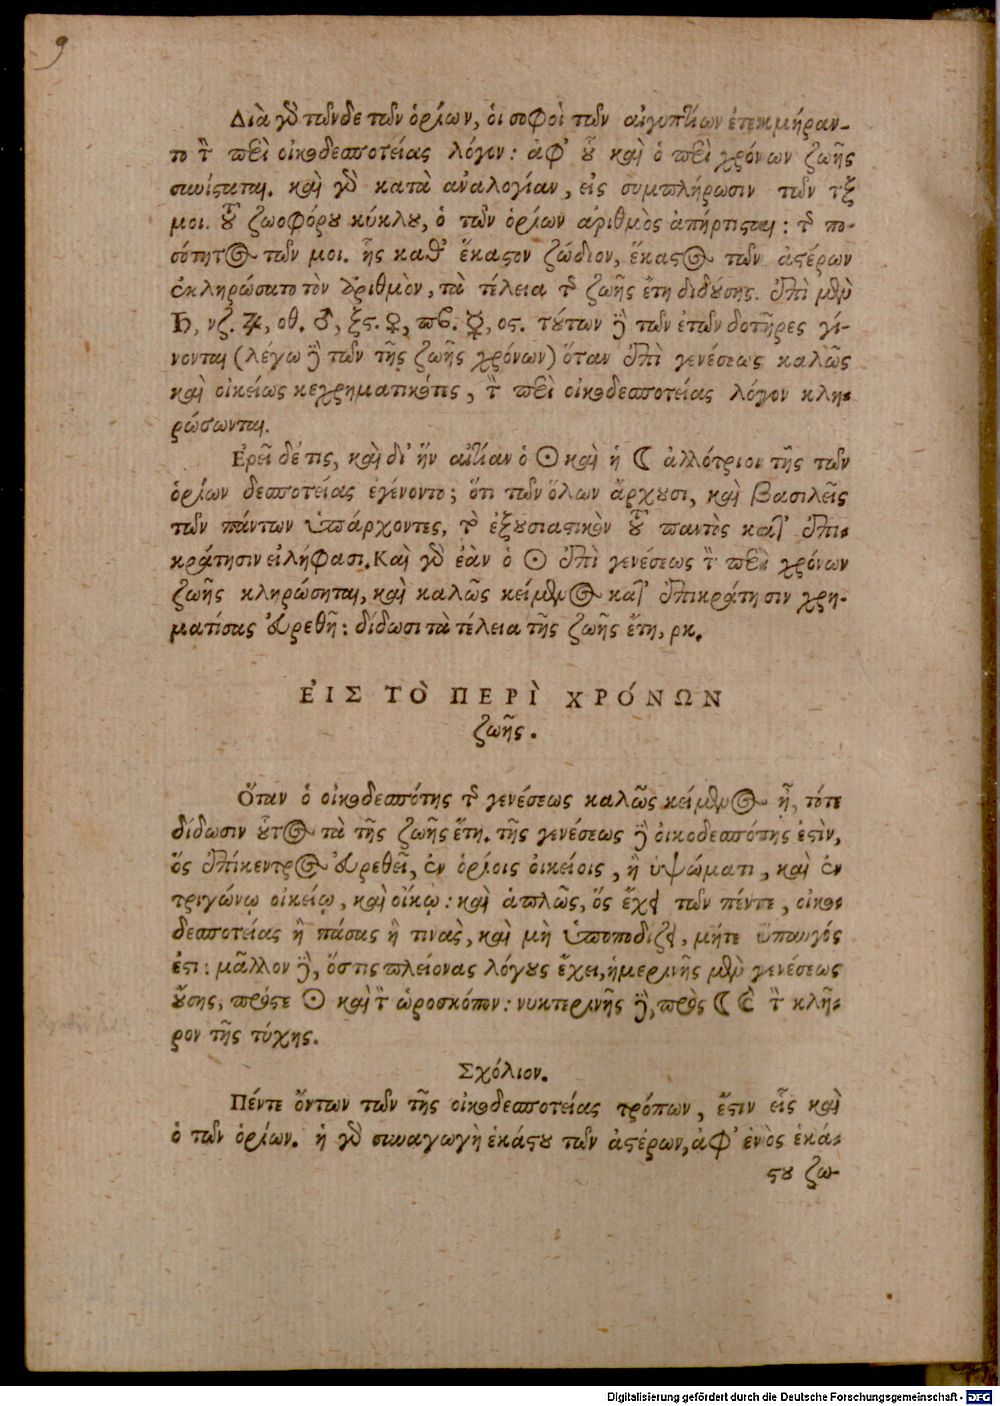 9
Διὰ γὰρ τῶνδε τῶν ὁρίων, οἱ σοφοὶ τῶν αἰγυπτίων ἐτεκμήραν-
το τὸν περὶ οἰκοδεσποτείας λόγον: ἀφ' οὗ καὶ ὁ περὶ χρόνων ζωῆς
συνίσταται. καὶ γὰρ κατὰ ἀναλογίαν, εἰς συμπλήρωσιν τῶν τξ
μοι. τοῦ ζωοφόρου κύκλου, ὁ τῶν ὁρίων ἀριθμὸς ἀπήρτισται: τῆς πο-
σότητος τῶν μοι. ἧς καθ' ἕκαστον ζώδιον, ἕκαστος τῶν ἀστέρων
ἐκληρώσατο τὸν ἀριθμὸν, τὰ τέλεια τῆς ζωῆς ἔτη διδούσης. ἐπὶ μὲν
♄, νζ. ♃, οθ. ♂, ξς. ♀, πβ. ☿, ος. τούτων δὲ τῶν ἐτῶν δοτῆρες γί-
νονται (λέγω δὲ τῶν τῆς ζωῆς χρόνων) ὅταν ἐπὶ γενέσεως καλῶς
καὶ οἰκείως κεχρηματικότες, τὸν περὶ οἰκοδεσποτείας λόγον κλη-
ρώσωνται.
Ἐρεῖ δέ τις, καὶ δι' ἥν αἰτίαν ὁ ☉ καὶ ἡ ☾ ἀλλότριοι τῆς τῶν
ὁρίων δεσποτείας ἐγένοντο; ὅτι τῶν ὅλων ἄρχουσι, καὶ βασιλεῖς
τῶν πάντων ὑπάρχοντες, τὸ ἐξουσιαστικὸν τοῦ παντὸς κατ' ἐπι-
κράτησιν εἰλήφασι. Καὶ γὰρ ἐὰν ὁ ☉ ἐπὶ γενέσεως τὸν περὶ χρόνων
ζωῆς κληρώσηται, καὶ καλῶς κείμενος κατ' ἐπικράτησιν χρη-
ματίσας εὑρεθῇ: δίδωσι τὰ τέλεια τῆς ζωῆς ἔτη, ρκ.
ἘΙΣ ΤῸ ΠΕΡῚ ΧΡΌΝΩΝ
ζωῆς.
Ὅταν ὁ οἰκοδεσπότης τῆς γενέσεως καλῶς κείμενος ᾖ, τότε
δίδωσιν οὗτος τὰ τῆς ζωῆς ἔτη. τῆς γενέσεως δὲ οἰκοδεσπότης ἐστὶν,
ὅς ἐπίκεντρος εὑρεθεῖ, ἐν ὁρίοις οἰκείοις, ἢ ὑψώματι, καὶ ἐν
τριγώνῳ οἰκείῳ, καὶ οἴκῳ: καὶ ἁπλῶς, ὅς ἔχει τῶν πέντε, οἰκο-
δεσποτείας ἢ πάσας ἢ τινας, καὶ μὴ ὑποποδίζει, μήτε ὕπαυγός
ἐστι: μᾶλλον δὲ, ὅστις πλείονας λόγους ἔχει, ἡμερινῆς μὲν γενέσεως
οὔσης, πρόςτε ☉ καὶ τὸν ὡροσκόπον: νυκτερινῆς δὲ, πρὸς ☾ καὶ τὸν κλῆ-
ρον τῆς τύχης.
Σχόλιον.
Πέντε ὄντων τῶν τῆς οἰκοδεσποτείας τρόπων, ἔστιν εἷς καὶ
ὁ τῶν ὁρίων. ἡ γὰρ συναγωγὴ ἑκάστου τῶν ἀστέρων, ἀφ' ἑνὸς ἑκά-
στου ζω-
Digitalisierung gefördert durch die Deutsche Forschungsgemeinschaft - DFG